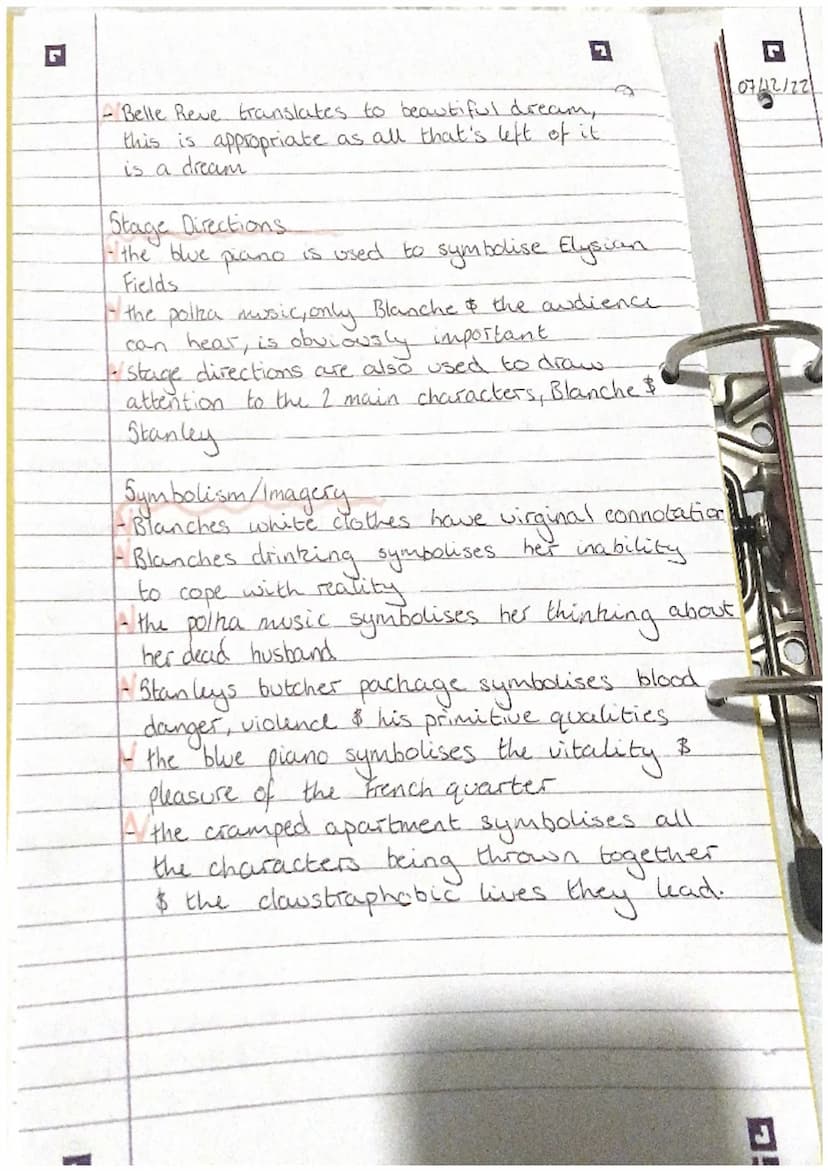 07/12/22
- Belle Reve translates to beautiful dream,
this is appropriate as all that's left of it
is a dream
Stage Directions
- the blue piano is used to symbolise Elysian
Fields
- the polka music, only Blanche & the audience
can hear, is obviously important
- stage directions are also used to draw
attention to the 2 main characters, Blanche &
Stanley
Symbolism/Imagery
- Blanches white clothes have virginal connotation
- Blanches drinking symbolises her inability
to cope with reality
- the polka music symbolises her thinking about
her dead husband
- Stanleys butcher package symbolises blood
danger, violence & his primitive qualities
- the blue piano symbolises the vitality &
pleasure of the French quarter
- the cramped apartment symbolises all
the characters being thrown together
& the clawstraphobic lives they lead.